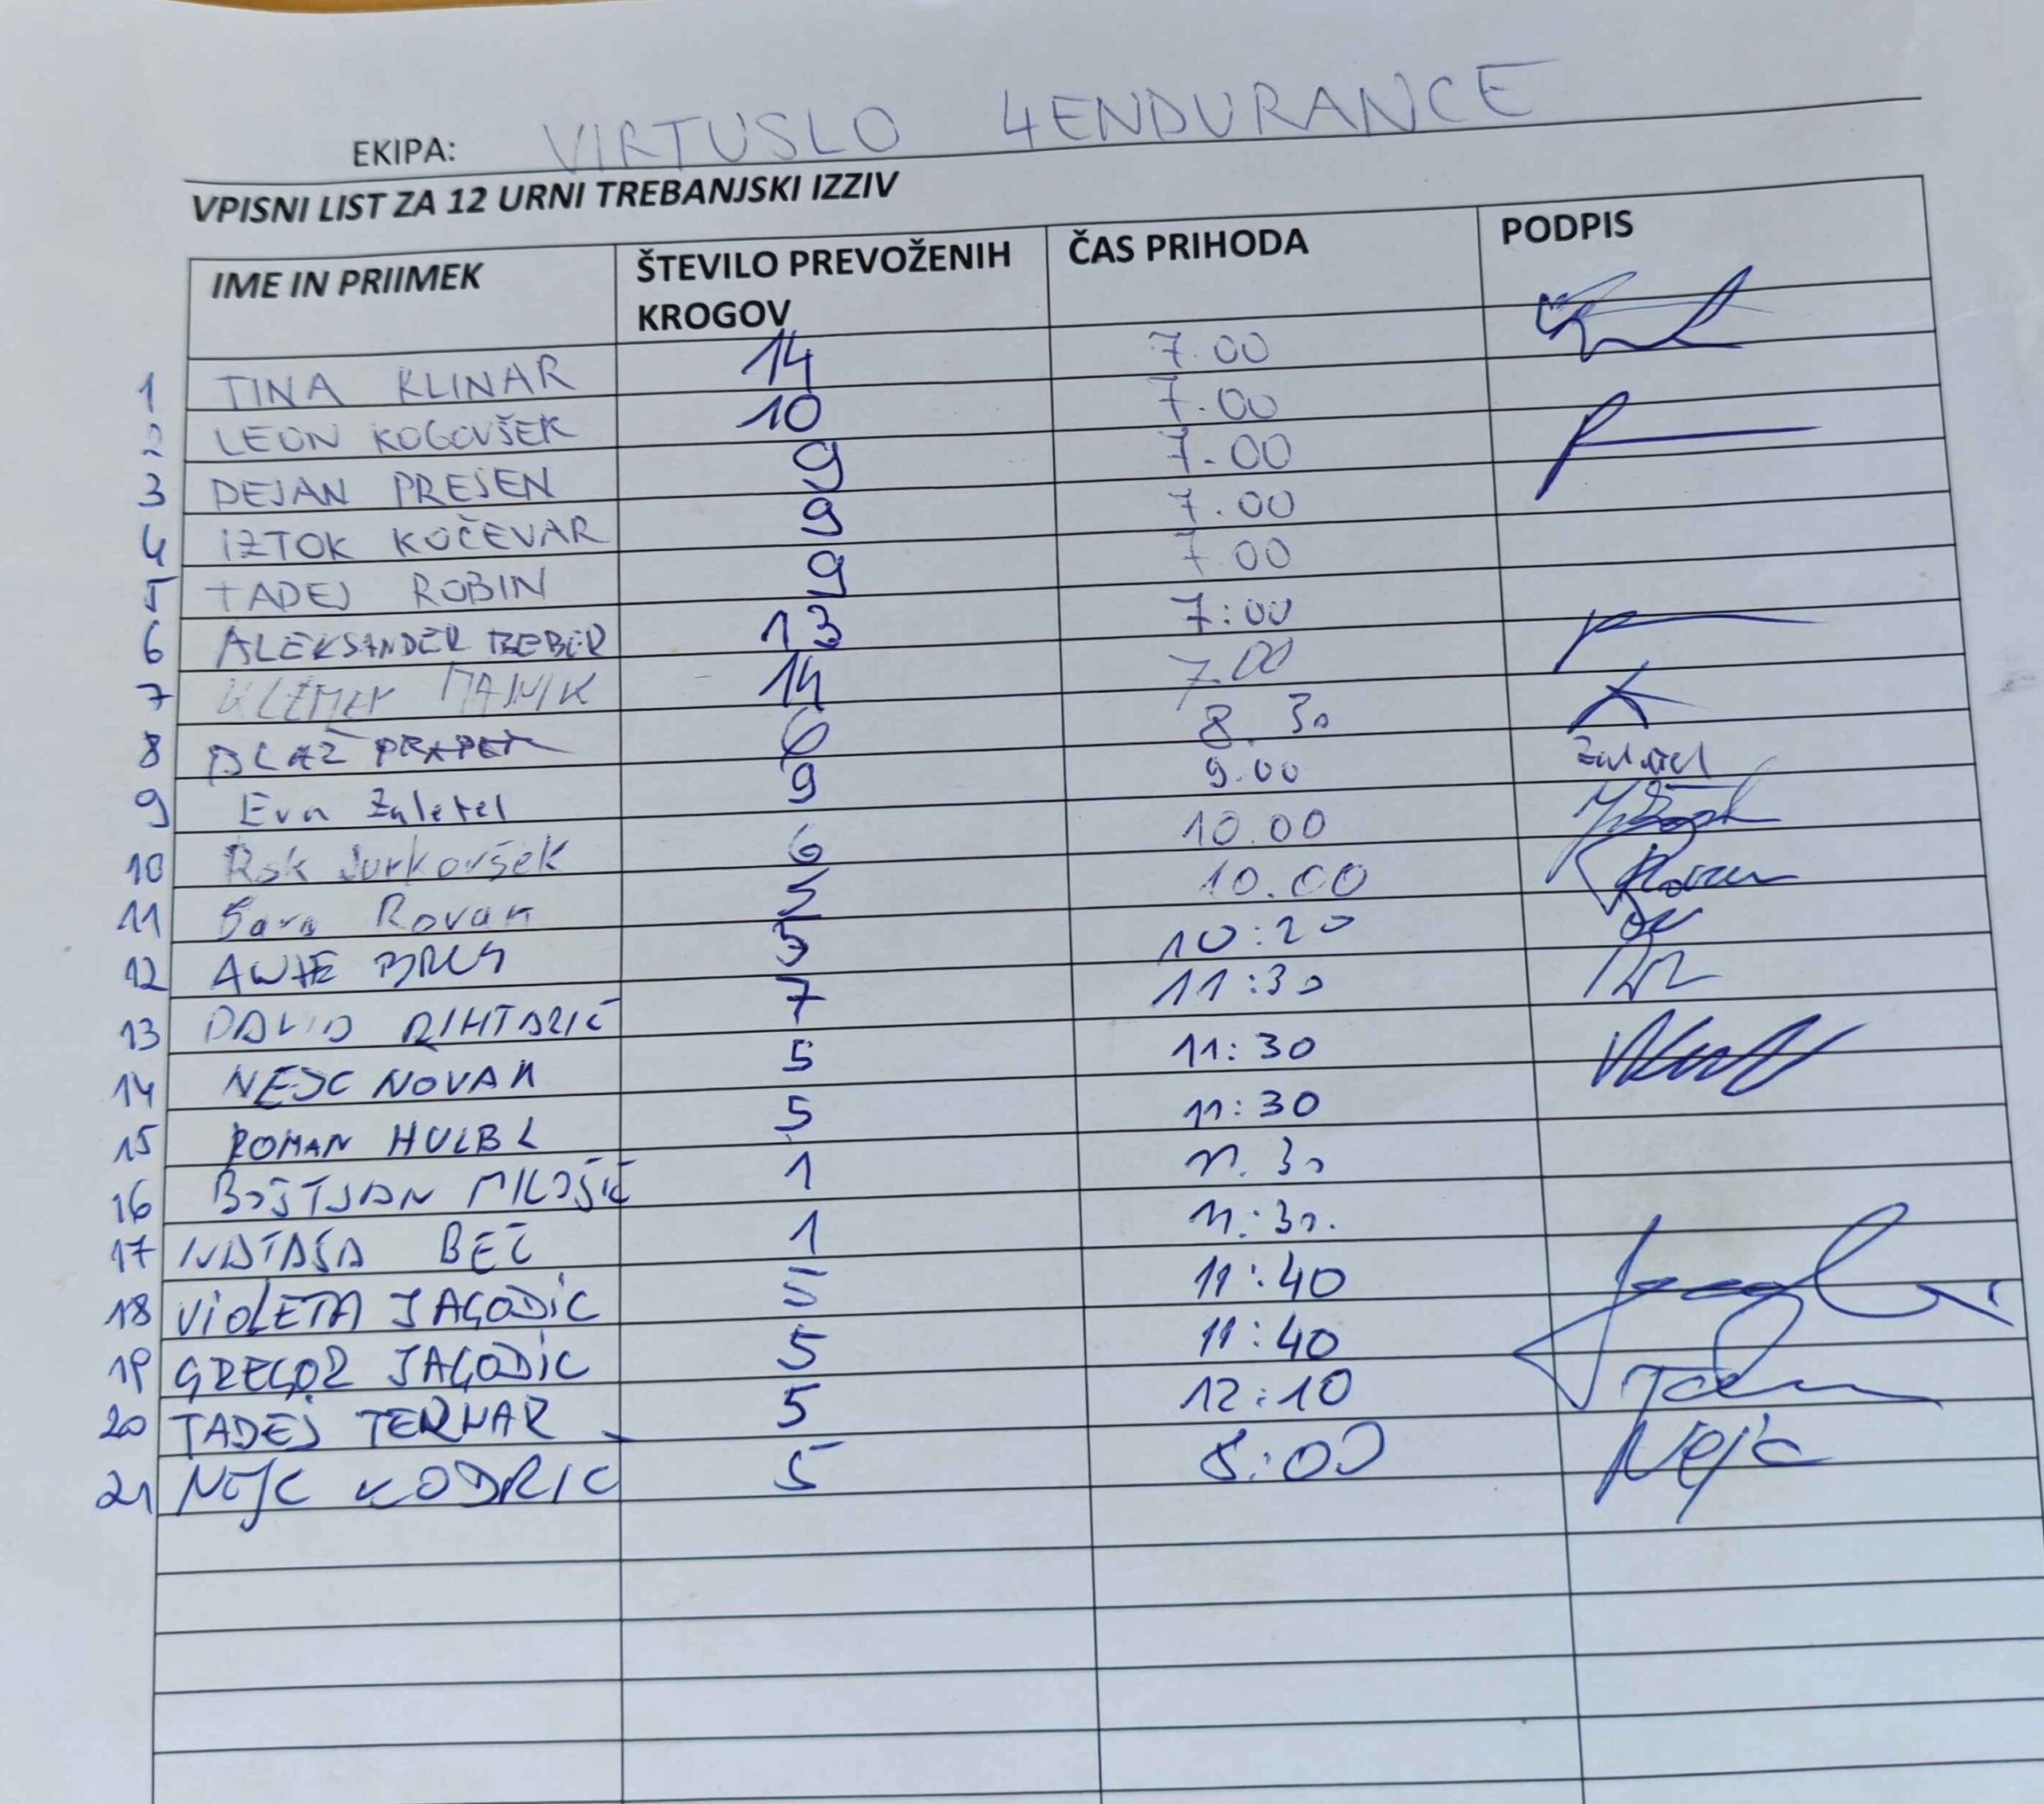 EKIPA: VIRTUSLO 4ENDURANCE
VPISNI LIST ZA 12 URNI TREBANJSKI IZZIV
IME IN PRIIMEK ŠTEVILO PREVOŽENIH KROGOV ČAS PRIHODA PODPIS
1 TINA KLINAR 14 7.00
2 LEON KOGOVŠEK 10 7.00
3 DEJAN PRESEN 9 7.00
4 IZTOK KOČEVAR 9 7.00
5 TADEJ ROBIN 9 7.00
6 ALEKSANDER 13 7:00
7 KLEMEN 14 7.00
8 BLAŽ 6 8.30
9 Eva Zaletel 9 9.00 Zaletel
10 Rok Jurkovšek 6 10.00
11 Sara Rovan 5 10.00 Rovan
12 5 10:20
13 DAVID RIHTARIČ 7 11:30
14 NEJC NOVAK 5 11:30
15 ROMAN HULBL 5 11:30
16 BOŠTJAN MILOŠIČ 1 11.30
17 NATAŠA BEČ 1 11:30.
18 VIOLETA JAGODIC 5 11:40
19 GREGOR JAGODIC 5 11:40
20 TADEJ TERNAR 5 12:10
21 NEJC KODRIC 5 8:00 Nejc